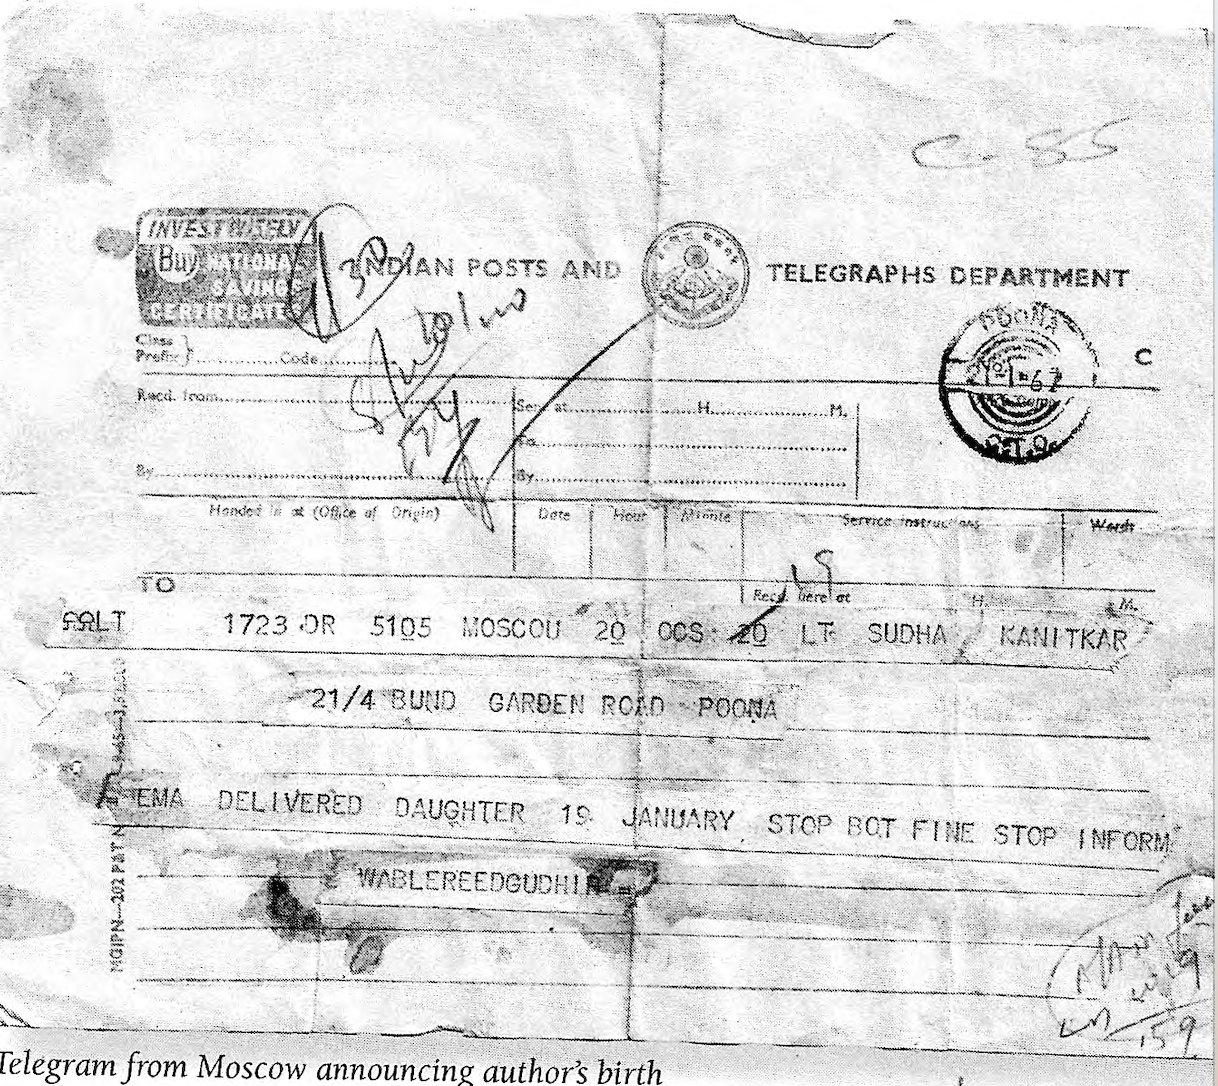 C 85
INVEST WISELY
Buy NATIONAL
SAVINGS
CERTIFICATES
INDIAN POSTS AND TELEGRAPHS DEPARTMENT
POONA
C
Class
Prefix
Code
Recd. from
Sent at H. M.
To
By By
Handed in at (Office of Origin) Date Hour Minute Service Instructions Words
19
TO
Recd. here at H. M.
LT 1723 DR 5105 MOSCOU 20 OCS 20 LT SUDHA KANITKAR
21/4 BUND GARDEN ROAD POONA
EMA DELIVERED DAUGHTER 19 JANUARY STOP BOT FINE STOP INFORM
WABLEREEDGUDHIR =
MGIPN—202 P&T
159
Telegram from Moscow announcing author's birth